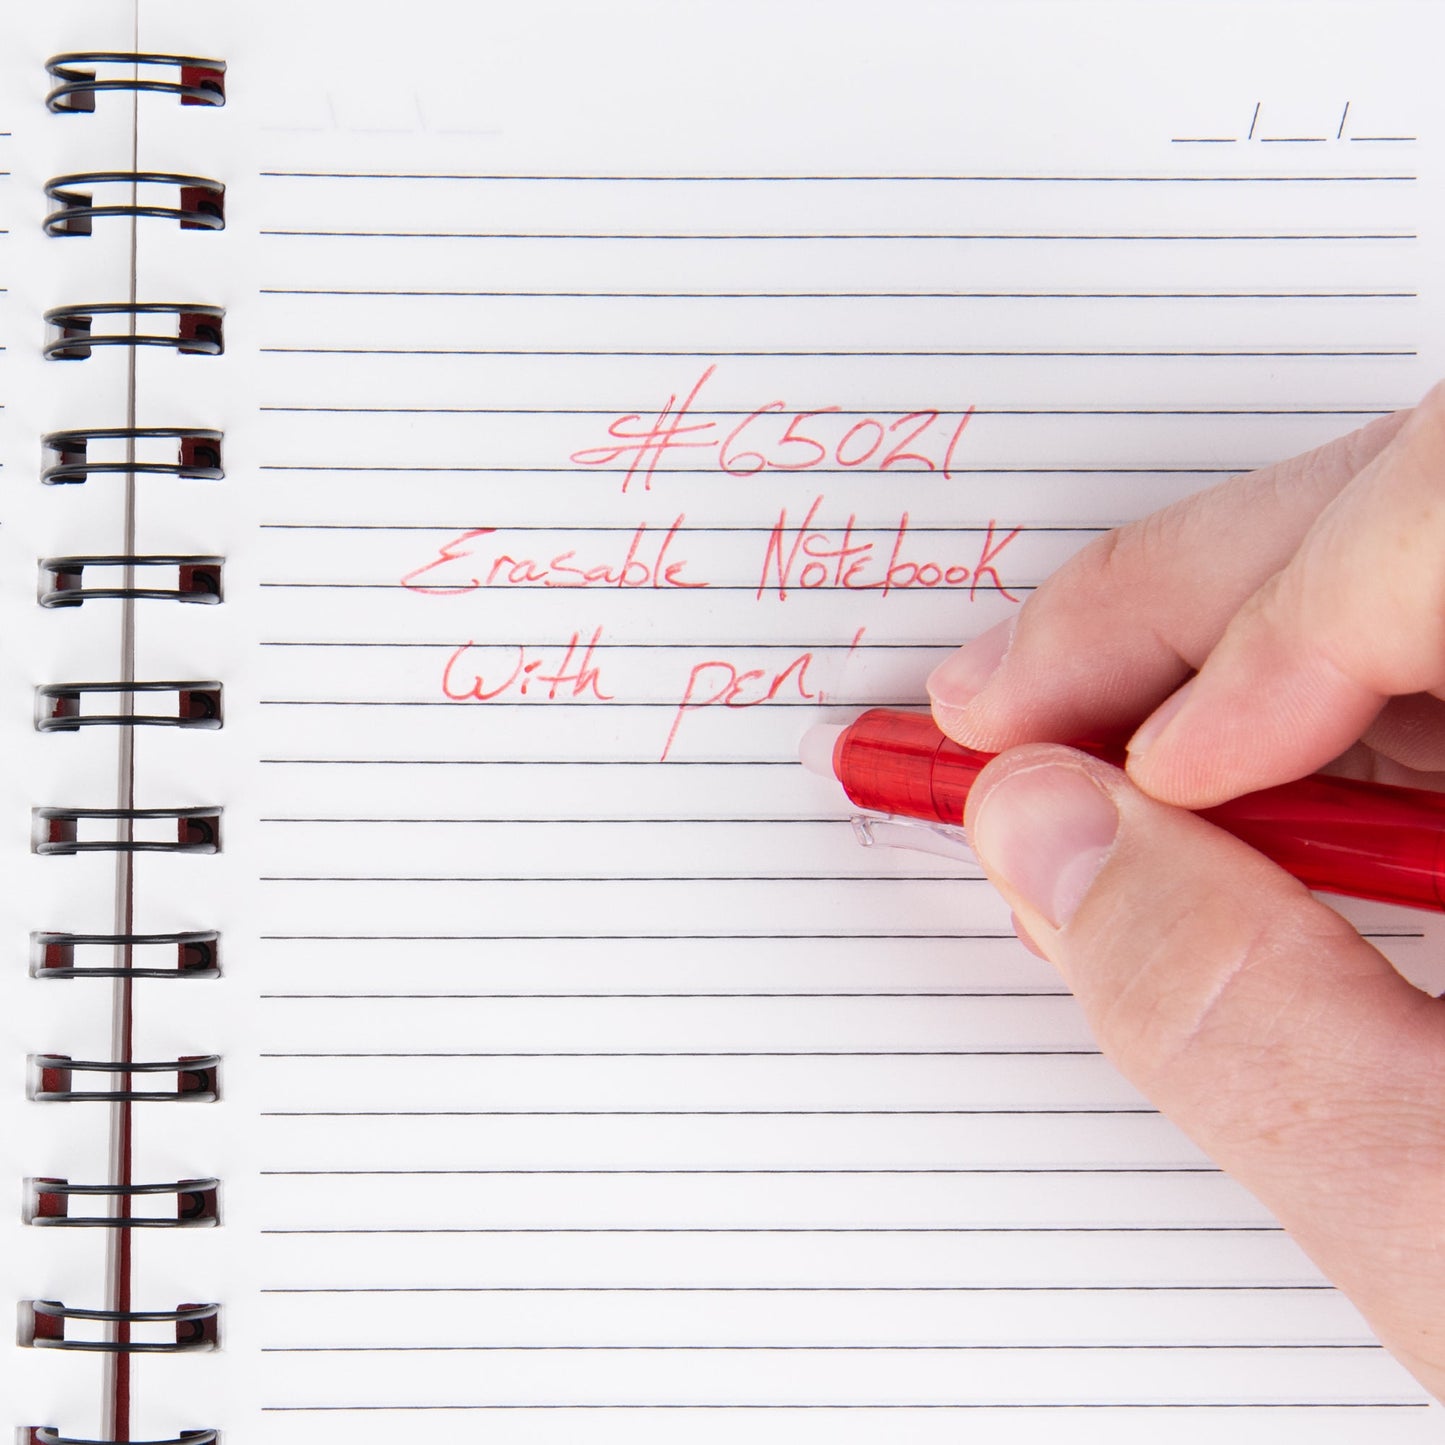 __/__/__
#65021
Erasable Notebook
With pen!